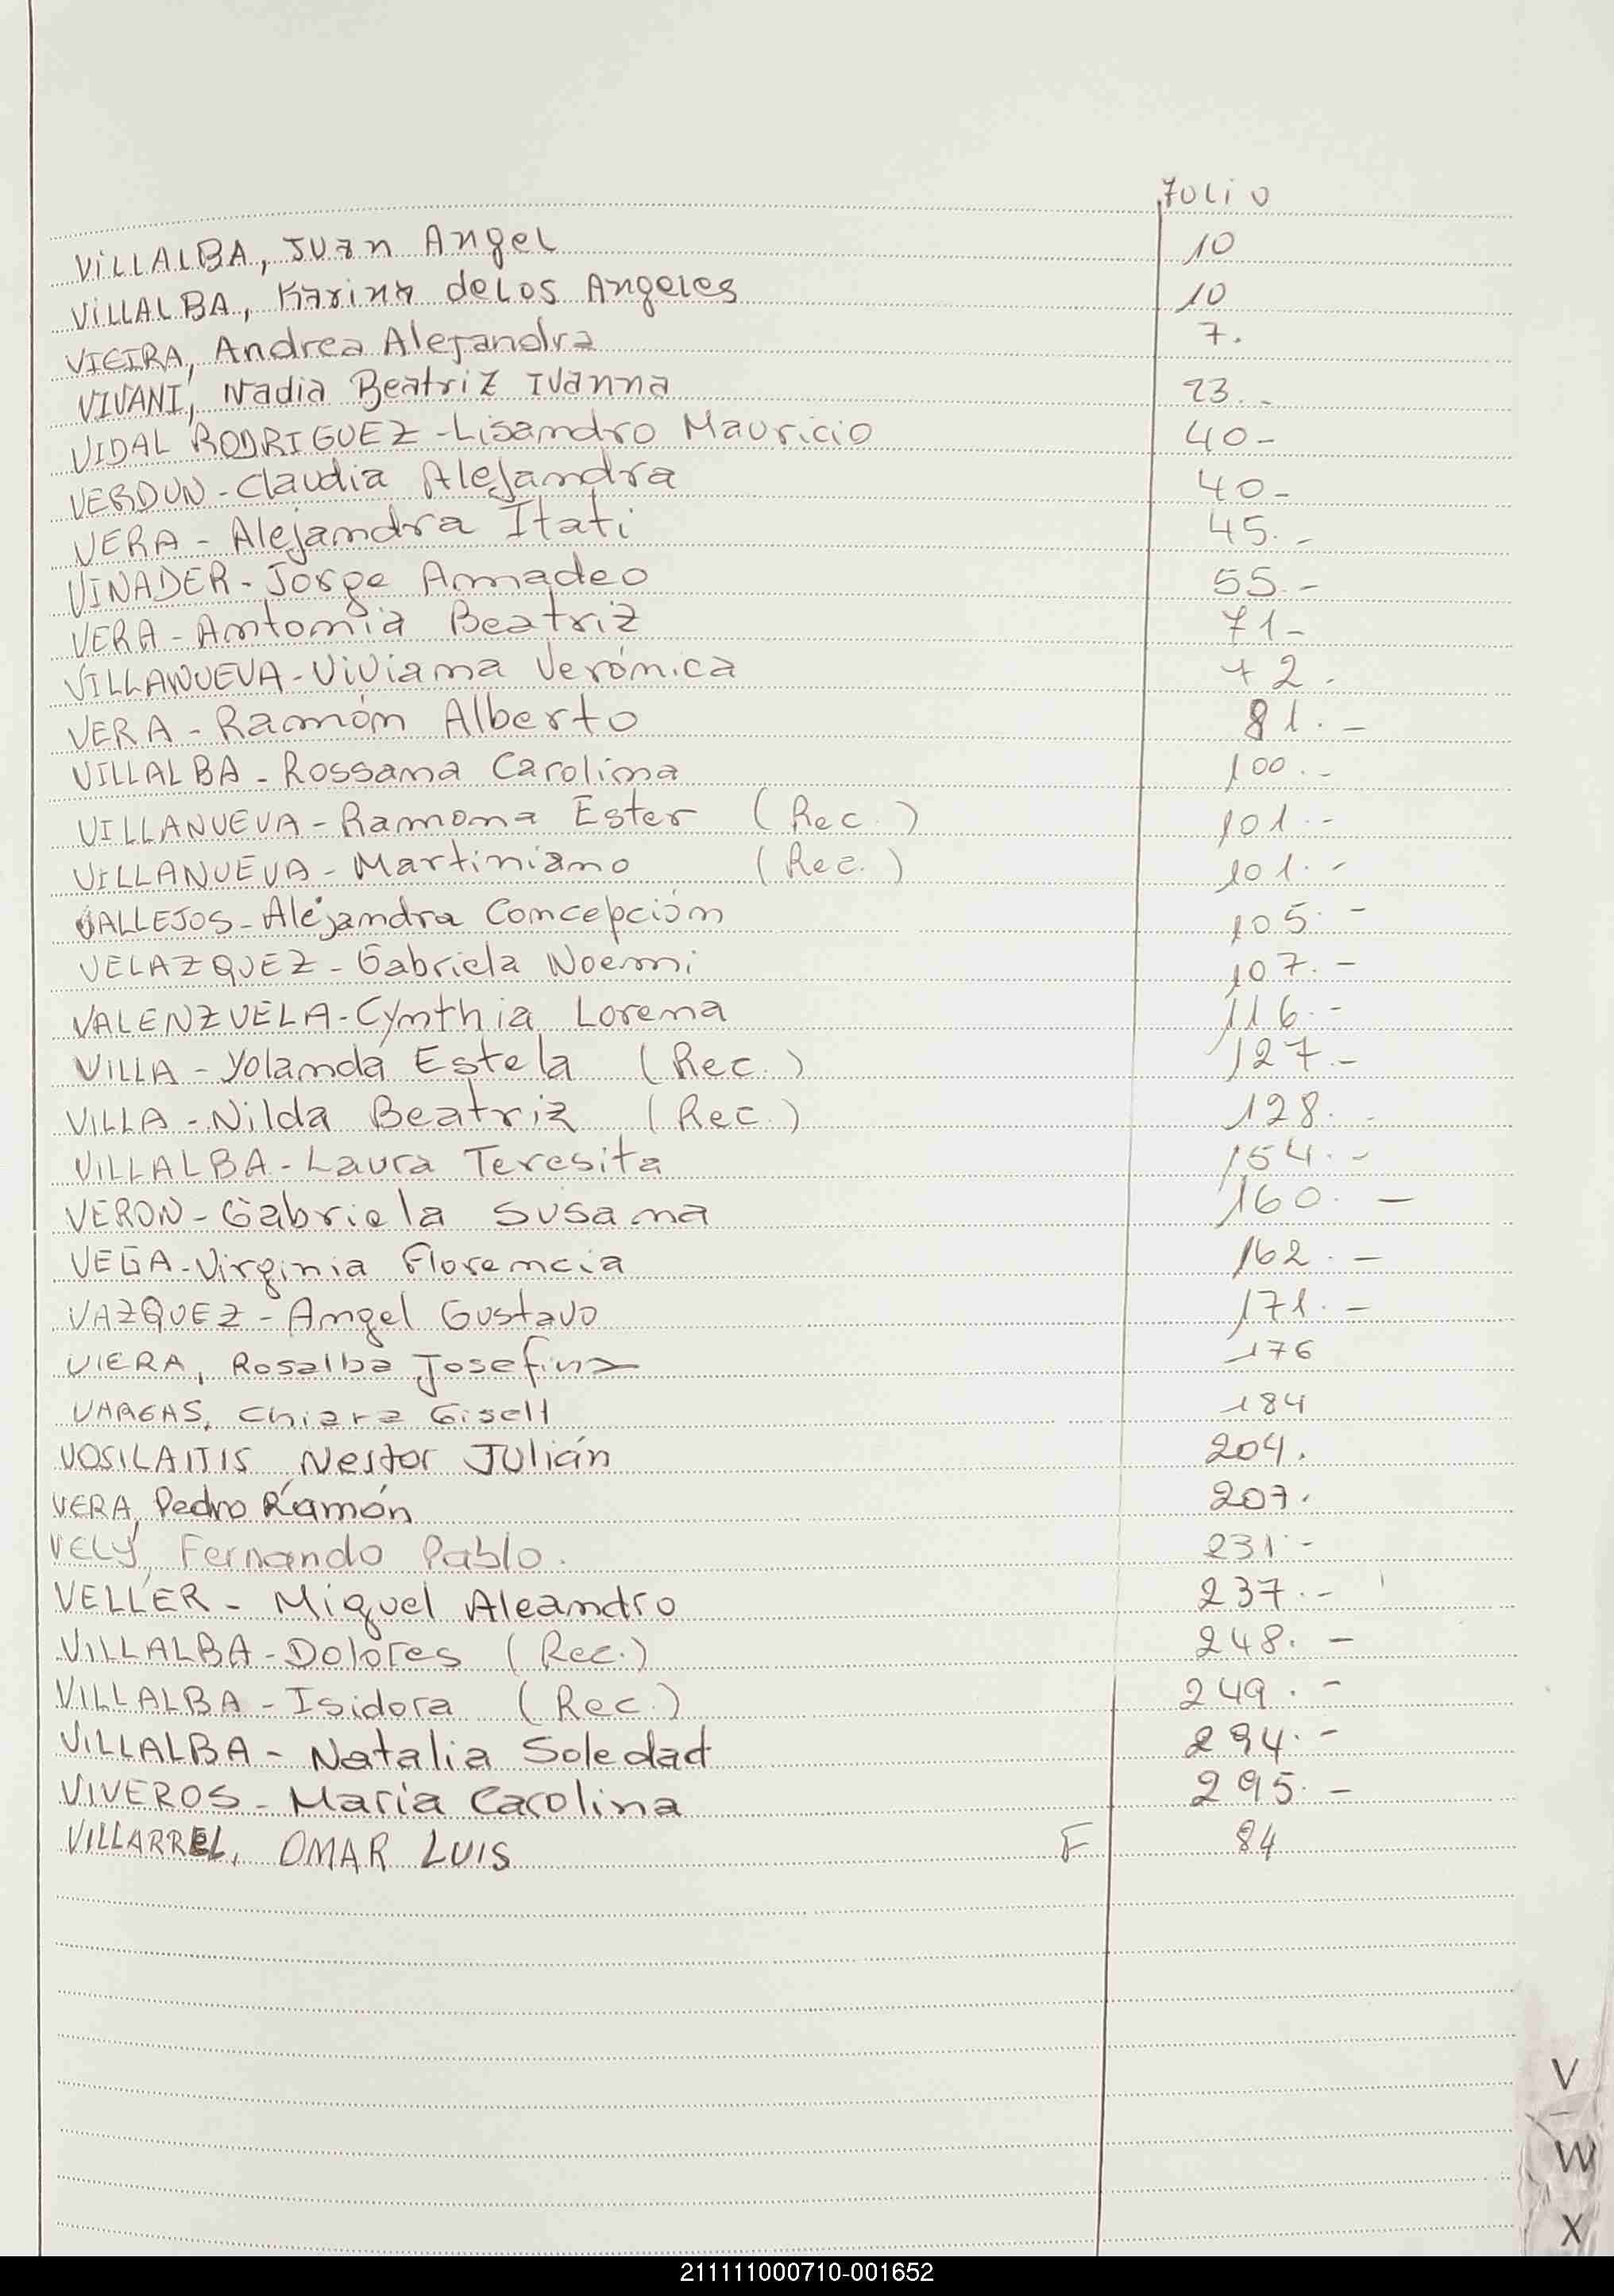 FOLIO
VILLALBA, Juan Angel 10
VILLALBA, Karina de Los Angeles 10
VIEIRA, Andrea Alejandra 7.
VIVANI, Nadia Beatriz Ivanna 23.-
VIDAL RODRIGUEZ - Lisandro Mauricio 40-
VERDUN - Claudia Alejandra 40-
VERA - Alejandra Itati 45.-
VINADER - Jorge Amadeo 55.-
VERA - Antonia Beatriz 71-
VILLANUEVA - Viviana Verónica 72.
VERA - Ramón Alberto 81.-
VILLALBA - Rossana Carolina 100.-
VILLANUEVA - Ramona Ester (Rec.) 101.-
VILLANUEVA - Martiniano (Rec.) 101.-
VALLEJOS - Alejandra Concepción 105.-
VELAZQUEZ - Gabriela Noemi 107.-
VALENZUELA - Cynthia Lorena 116.-
VILLA - Yolanda Estela (Rec.) 127.-
VILLA - Nilda Beatriz (Rec.) 128.-
VILLALBA - Laura Teresita 154.-
VERON - Gabriela Susana 160.-
VEGA - Virginia Florencia 162.-
VAZQUEZ - Angel Gustavo 171.-
VIERA, Rosalba Josefina 176
VARGAS, Chiara Gisell 184
VOSILAITIS, Nestor Julián 204.
VERA, Pedro Ramón 207.
VELY, Fernando Pablo. 231.-
VELLER - Miguel Aleandro 237.-
VILLALBA - Dolores (Rec.) 248.-
VILLALBA - Isidora (Rec.) 249.-
VILLALBA - Natalia Soledad 294.-
VIVEROS - María Carolina 295.-
VILLARREL, OMAR LUIS F 84
V
W
X
211111000710-001652